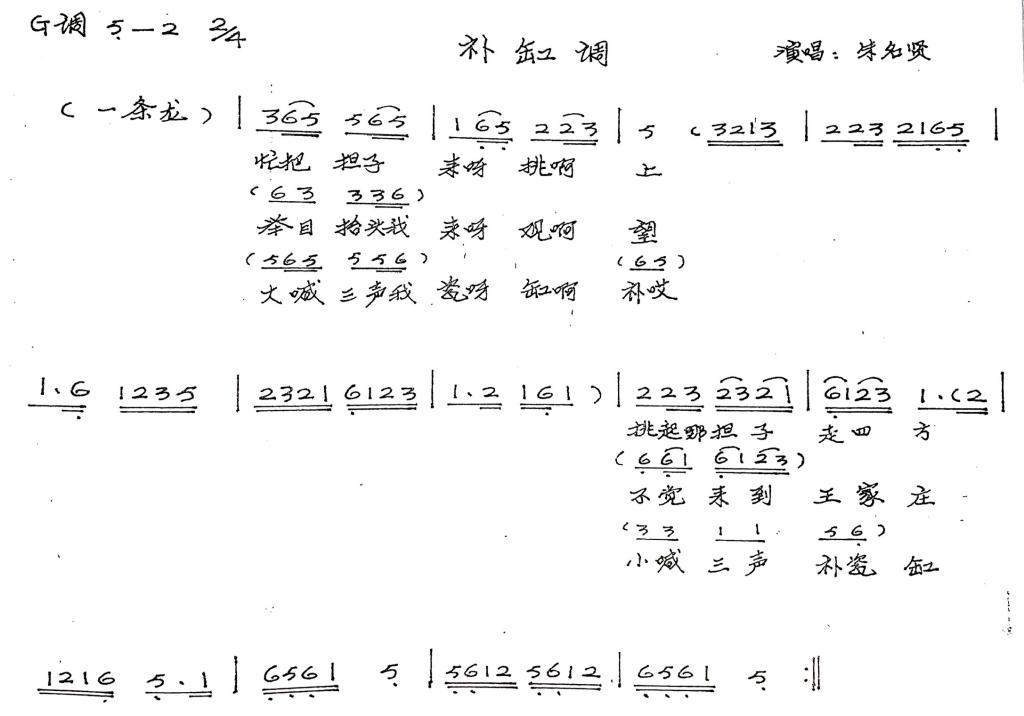 G调 5—2 2/4
补缸调 演唱：朱名贤
（一条龙）| 365 565 | 165 223 | 5 (3213 | 223 2165 |
忙把 担子 来呀 挑啊 上
(63 336)
举目 抬头我 来呀 观啊 望
(565 556) (65)
大喊 三声我 瓷呀 缸啊 补哎
1.6 1235 | 2321 6123 | 1.2 161 ) | 223 2321 | 6123 1.(2 |
挑起那担子 走四方
(661 6123)
不觉来到 王家庄
(33 11 56)
小喊三声 补瓷缸
1216 5.1 | 6561 5 | 5612 5612 | 6561 5 :||